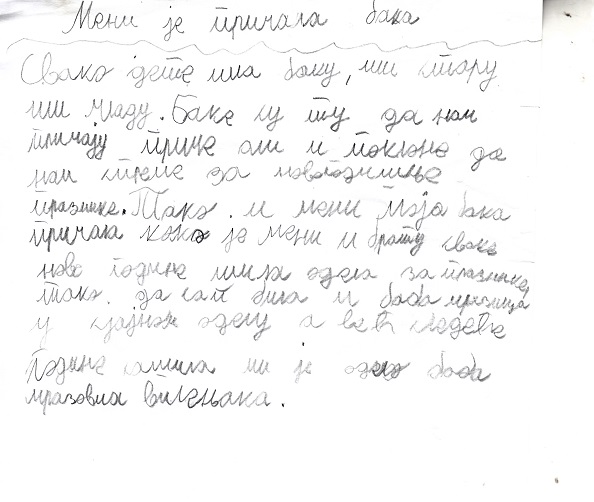 Мени је причала бака
Свако дете има баку, или стару
или младу. Баке су ту да нам
причају приче али и поклоне да
нам спреме за новогодишње
празнике. Тако. и мени моја бака
причала како је мени и брату сваке
нове године шила одела за празнике,
тако. да сам била и баба
у сјајном оделу а већ следеће
године сашила ми је одело баба
вилењака.